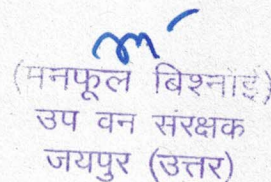 (मनफूल बिश्नाई)
उप वन संरक्षक
जयपुर (उत्तर)